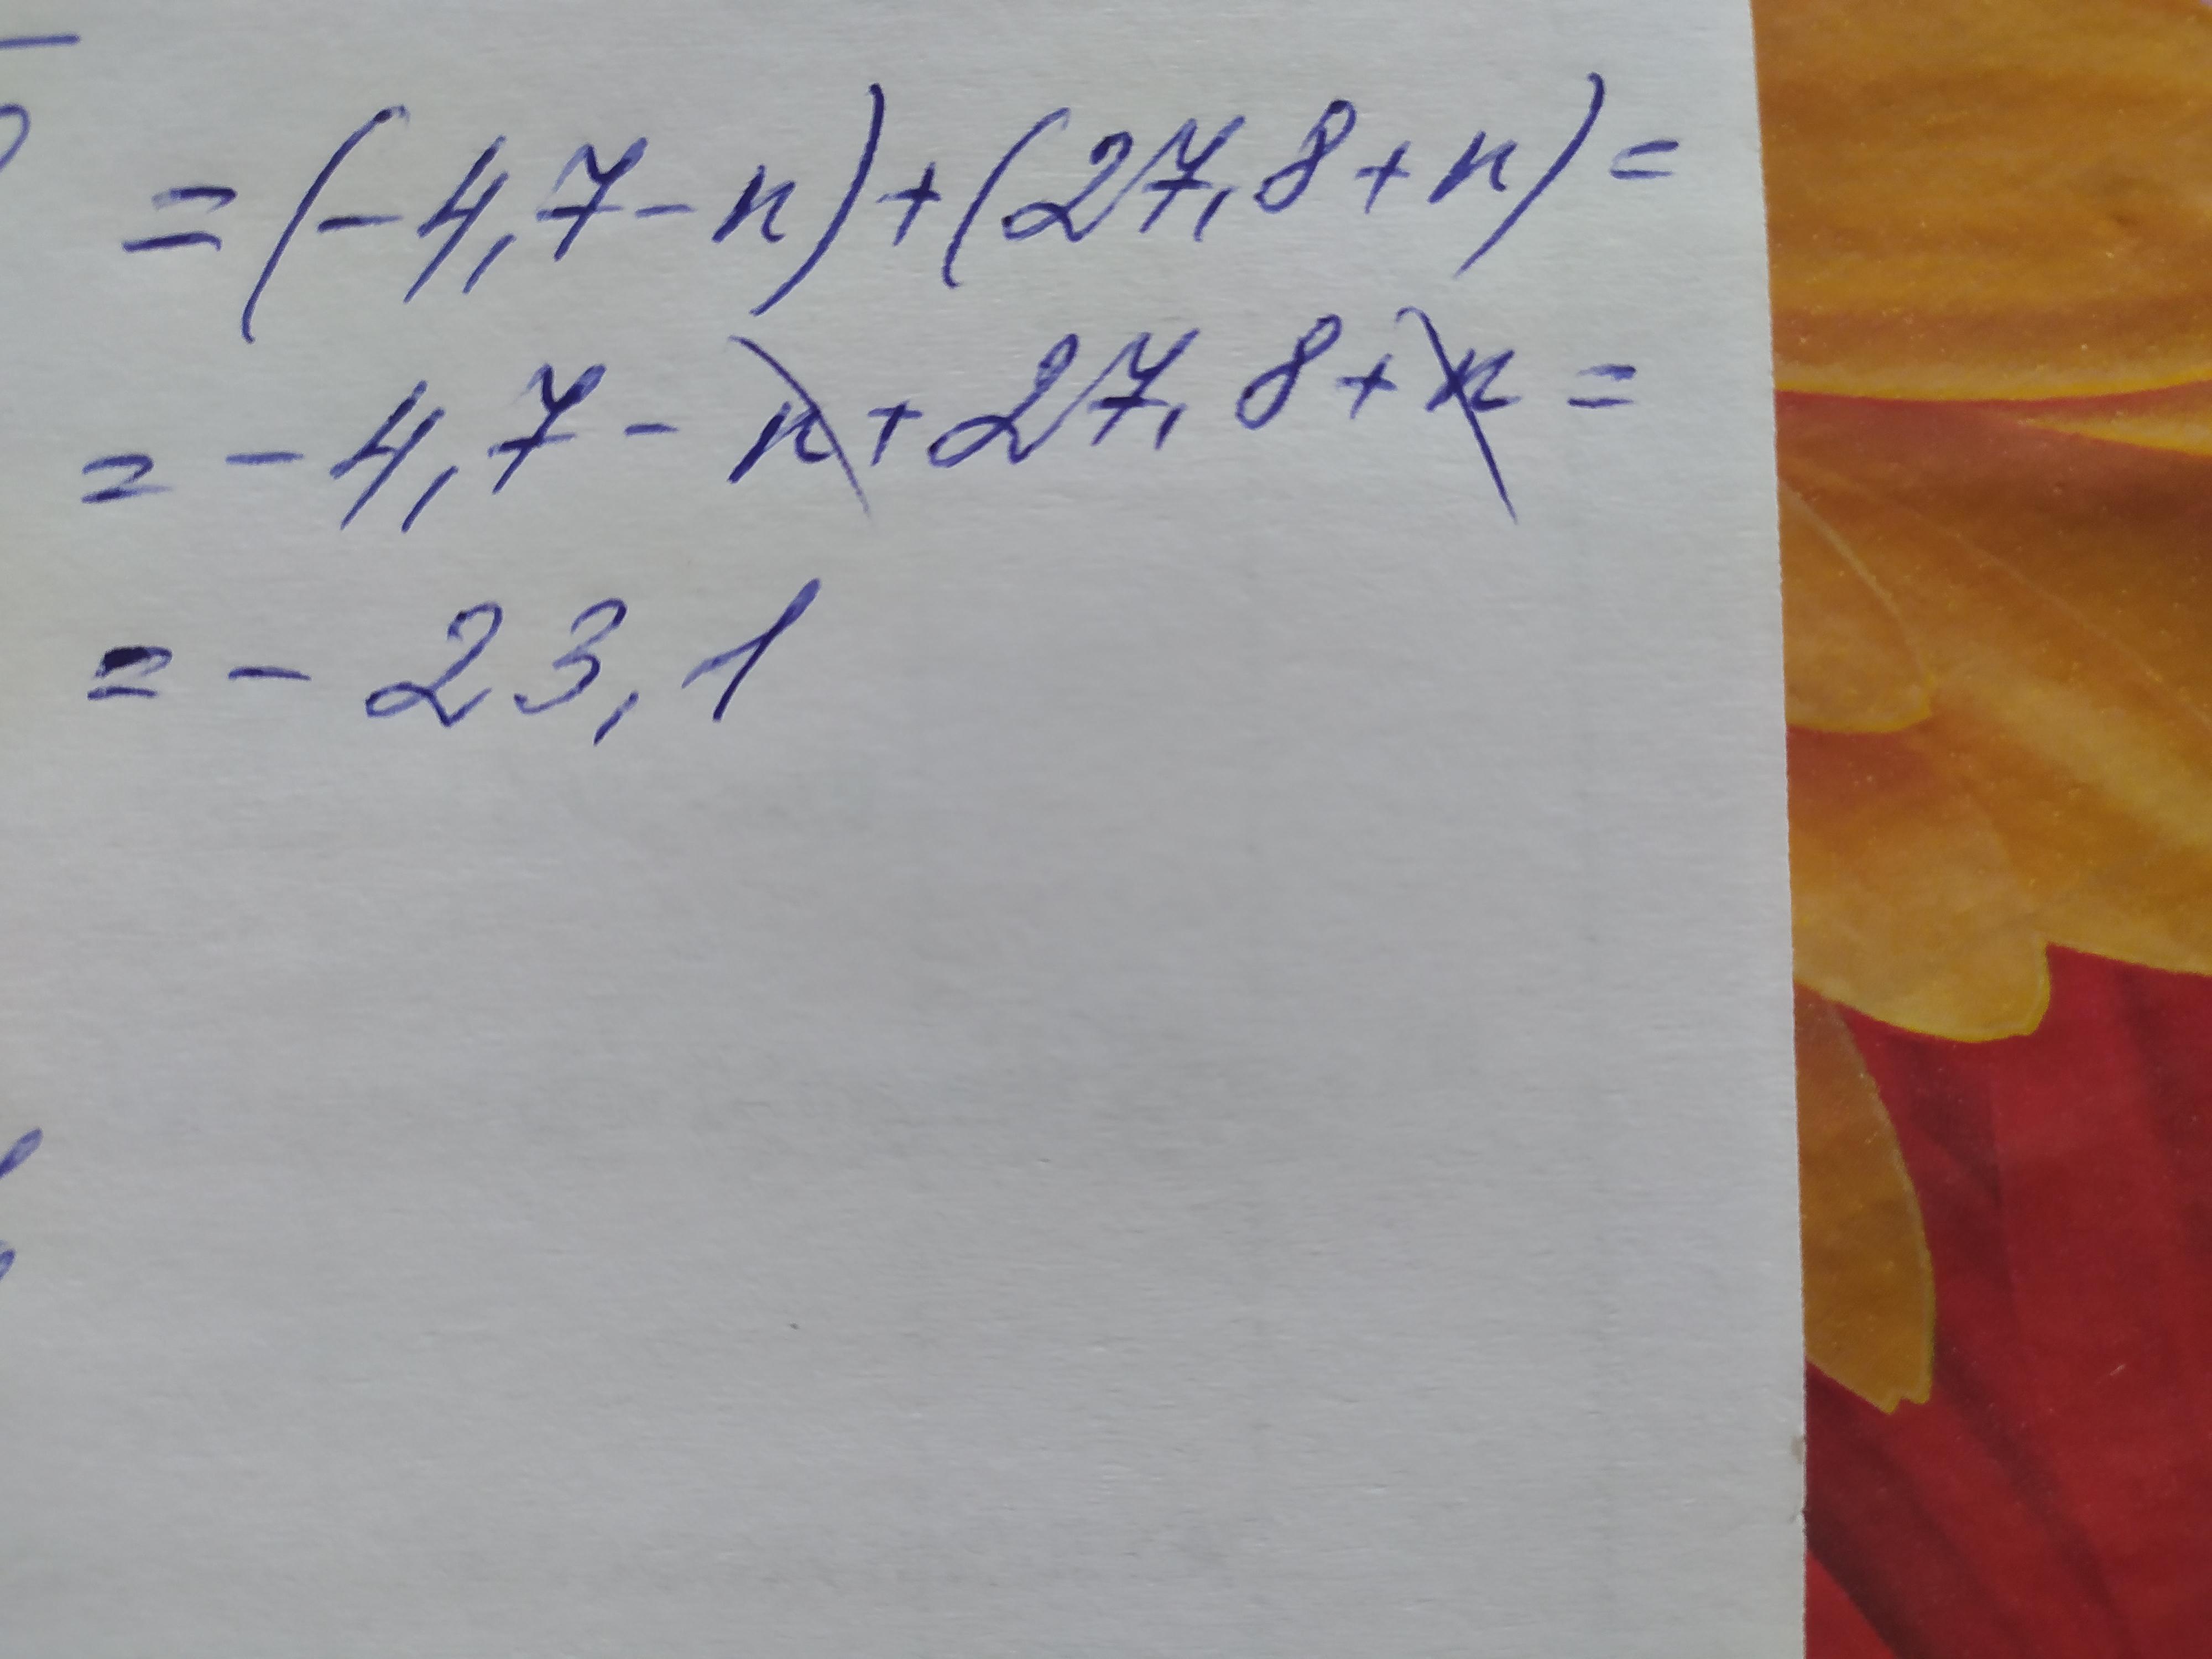 = (- 4,7 - n) + (27,8 + n) =
= - 4,7 - n + 27,8 + n =
= - 23,1